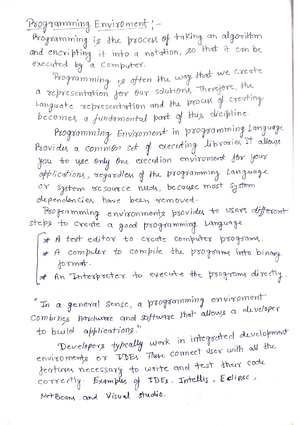 Programming Enviroment :-
Programming is the process of taking an algorithm
and encripting it into a notation, so that it can be
executed by a Computer.
Programming is often the way that we create
a representation for our solutions, Therefore, the
Language representation and the process of creating
becomes a fundamental part of this dicipline.
Programming Enviroment in programming Language
Provides a common set of executing libraries. It allows
you to use only one execution enviroment for your
applications, regardless of the programming Language
or System resource needs, because most system
dependencies have been removed.
Programming environments provides to users different
steps to create a good programming Language
* A text editor to create computer programs.
* A compiler to compile the programs into binary
format.
* An Interpreter to execute the programs directly.
"In a general Sense, a programming enviroment
Combines hardware and software that allows a developer
to build applications."
Developers typically work in integrated development
enviroments or IDEs. These connect user with all the
features necessary to write and test their code
correctly. Examples of IDEs, Intellij, Eclipse,
NetBeans and Visual studio.